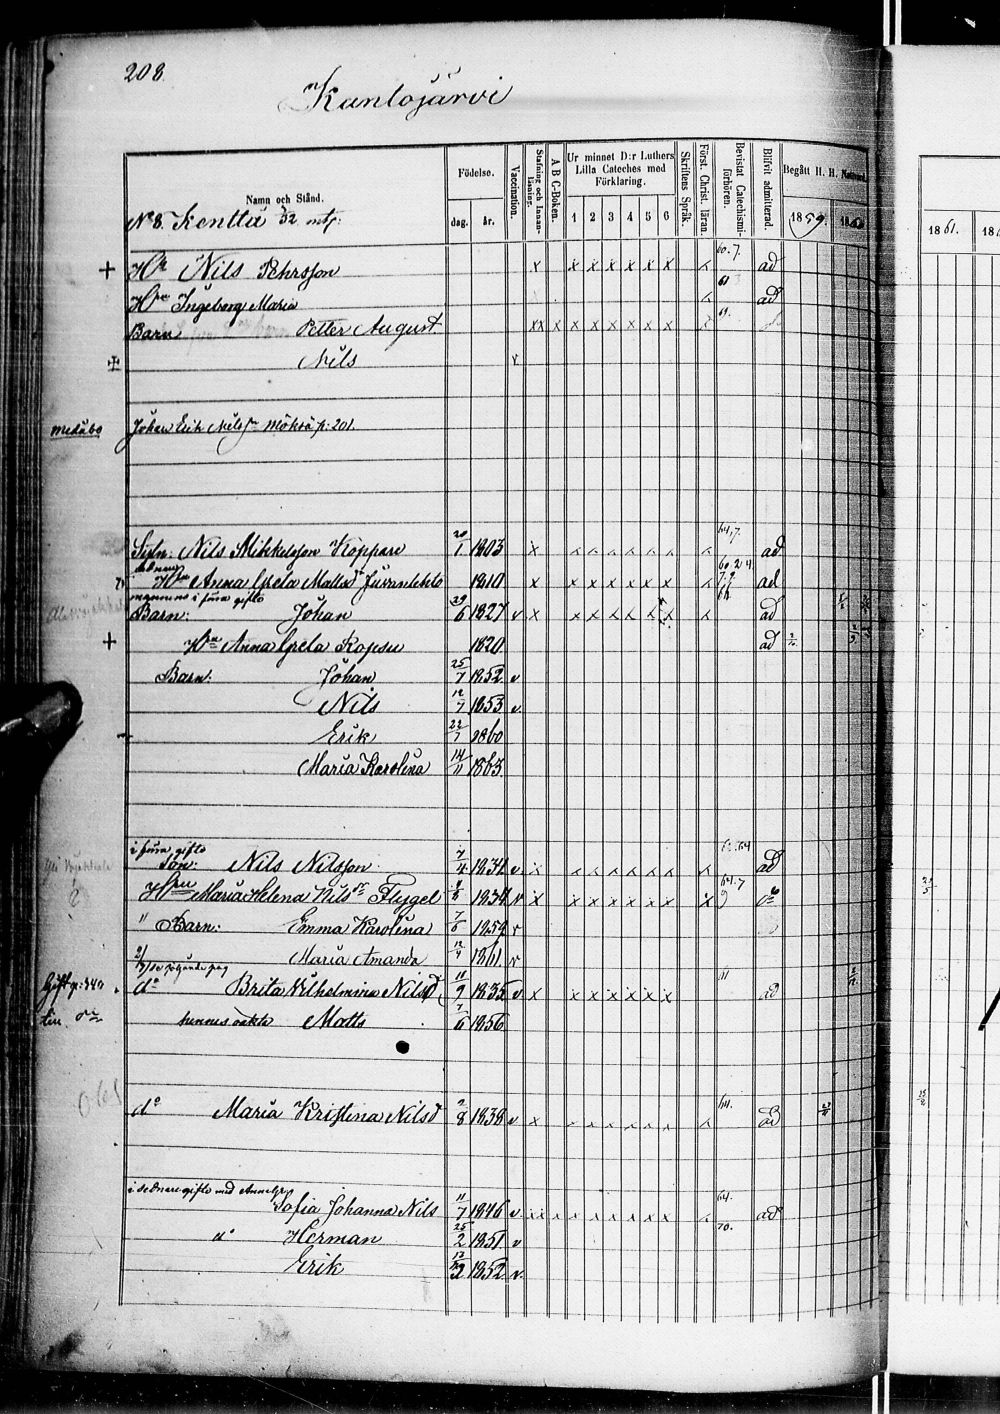 208.
Kuntojärvi
Namn och Stånd.
Födelse.
dag. år.
Vaccination.
Stafning och Innanläsning.
A B C-Boken.
Ur minnet D:r Luthers Lilla Cateches med Förklaring.
1 2 3 4 5 6
Skriftens Språk.
Först. Christ. läran.
Bevistat Catechismiförhören.
Blifvit admitterad.
Begått H. H. Nattvard.
1859. 1860
1861.
N:o 8. Kenttä 5/32 mtl.
+ Hr Nils Pehrsson x x x x x x x x 60.7. ad
Hu Ingeborg Maria 61 ad
Barn Petter August xx x x x x x x x 61.
Nils v
Johan Erik Nilss p. 201.
Nils Mikkelsson Koppare 20/1 1803 x 64,7. ad
Hu Anna Greta Mattsd 1810 x x x x x x x ad
i förra gifte
Barn: Johan 29/6 1827 v x x x x x x x ad
+ Hu Anna Greta Kopsu 1820 ad
Barn: Johan 25/7 1852 v
Nils 12/7 1853 v.
Erik 22/7 1860
Maria Karolina 14/11 1863
i förra gifte
Son: Nils Nilsson 7/4 1831 v. x ad
Hu Maria Helena Nilsdr Flygel 1834 v x x x x x x x x 64.7
" Barn: Emma Karolina 7/6 1859 v
Maria Amanda 12/4 1861 v
Gift p: 340
do Brita Wilhelmina Nilsd 11/9 1835 v x x x x x x x 61 ad
hennes oäkta Matts 7/6 1856
do Maria Kristina Nilsd 2/8 1838 v x 64. ad
i sednare gifte med Anna Gr.
Sofia Johanna Nils 11/7 1846 v. xx x x x x x x x 64. ad
70.
d Herman 25/2 1851 v
Erik 13/12 1852 v.